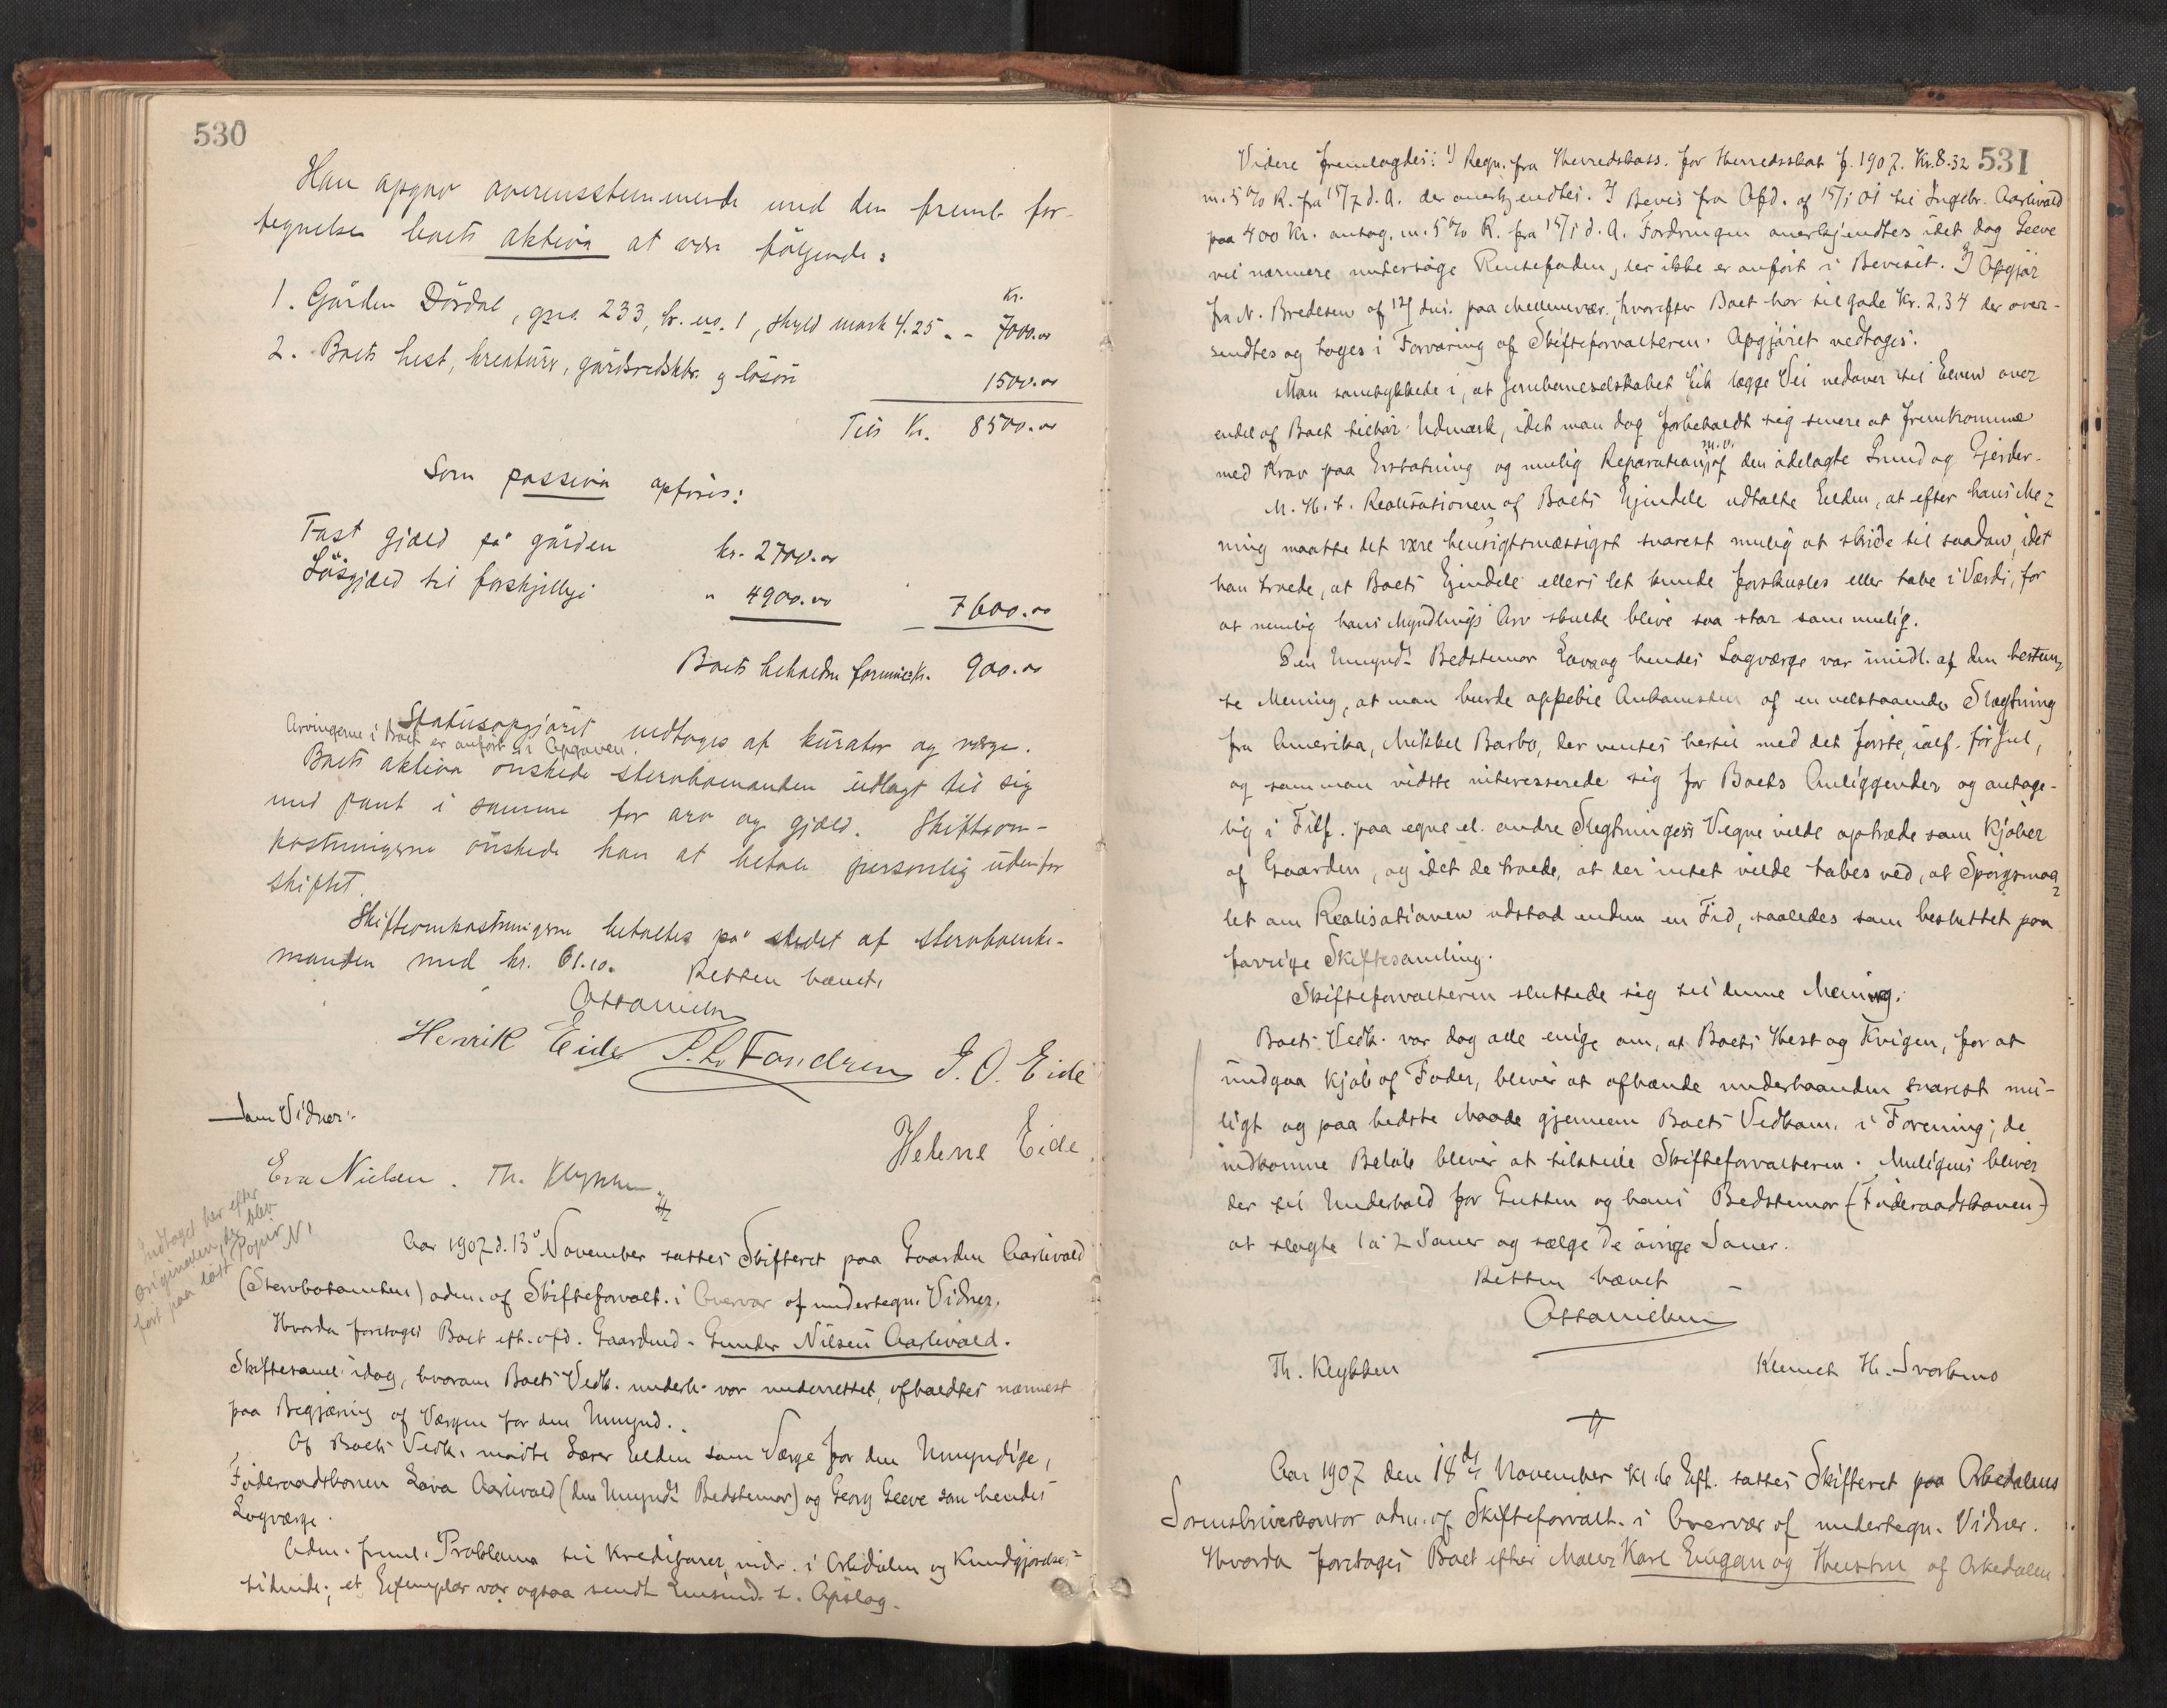 530
Han opgav overensstemmende med den freml. for-
tegnelse boets aktiva at være følgende:
Kr.
1. Gården Dørdal, gno. 233, br. no. 1, skyld mark 4.25 - - 7000.00
2. Boets hest, kreaturer, gårdsredskbr. og løsøre 1500.00
Tils Kr. 8500.00
Som passiva opføres:
Fast gjæld på gården kr. 2700.00
Løsgjæld til forskjellige " 4900.00 7600.00
Boets beholdne formue Kr. 900.00
Statusopgjøret vedtoges af kurator og værge.
Arvingerne i Boet er anført i Opgaven.
Boets aktiva ønskede stervboemanden udlagt til sig
med pant i samme for arv og gjæld. Skifteom-
kostningerne ønskede han at betale personlig udenfor
skiftet.
Skifteomkostningerne betaltes på stedet af stervboenke-
manden med kr. 61.10. Retten hævet.
Henrik Eide P. L. Fandrem J. O. Eide
Som Vidner: Helene Eide.
Eva Nielsen. Th. Klykken
Indtaget her efter
originalen, der blev
ført paa løst Papir
Aar 1907 d. 13' November sattes Skifteret paa Gaarden Aarlivold
(Stervbotomten) adm. af Skifteforvalt. i Overvær af undertegn. Vidner.
Hvorda foretoges Boet eft. afd. Gaardmd. Gunder Nilsen Aarlivold.
Skiftesaml. idag, hvorom Boets Vedk. underh. var underrettet, afholdtes nærmest
paa Begjæring af Værgen for den Umynd.
Af Boets Vedk. mødte Lærer Eelden som Værge for den Umyndige,
Føderaadskonen Lava Aarlivold (den Umynd.s Bedstemor) og Georg Leeve som hendes
Lagværge.
Adm. freml. Proklama til Kreditorer, indr. i Orkidalen og Kundgjørelses-
tidende; et Exemplar var ogsaa sendt Lensmd. t. Opslag.
531
Videre fremlagdes: 1) Regn. fra Herredskass. for Herredsskat f. 1907. Kr. 8.32
m. 5 % R. fra 15/7 d. A. der anerkjendtes. 2) Bevis fra Afd. af 15/1 01 til Ingebr. Aarlivold
paa 400 Kr. antag. m. 5 % R. fra 15/1 d. A. Fordringen anerkjendtes idet dog Leeve
vil nærmere undersøge Rentefoden, der ikke er anført i Beviset. 3) Opgjør
fra N. Bredesen af 12/ ds. paa Mellemvær., hvorefter Boet har tilgode Kr. 2,34 der over-
sendtes og toges i Forvaring af Skifteforvalteren. Opgjøret vedtoges.
Man samtykkede i, at Jernbaneselskabet fik lægge Vei nedover til Elven over
endel af Boet tilhør. Udmark, idet man dog forbeholdt sig senere at fremkomme
med Krav paa Erstatning og mulig Reparation m.v. af den ødelagte Grund og Gjerder.
M. H. t. Realisationen af Boets Eiendele udtalte Eelden, at efter hans Me-
ning maatte det være hensigtsmæssigst snarest mulig at skride til saadan, idet
han troede, at Boets Eiendele ellers let kunde forskusles eller tabe i Værdi, for
at nemlig hans Myndlings Arv skulde blive saa stor som mulig.
Den Umynd.s Bedstemor Lava og hendes Lagværge var imidl. af den bestem-
te Mening, at man burde oppebie Ankomsten af en velstaaende Slægtning
fra Amerika, Mikkel Barbo, der ventes hertil med det første, ialf. før Jul,
og som man vidste interesserede sig for Boets Anliggender og antage-
lig i Tilf. paa egne el. andre Slegtninges Vegne vilde optræde som Kjøber
af Gaarden, og idet de troede, at der intet vilde tabes ved, at Spørgsmaa-
let om Realisationen udstod endnu en Tid, saaledes som besluttet paa
forrige Skiftesamling.
Skifteforvalteren sluttede sig til denne Mening.
Boets Vedk. var dog alle enige om, at Boets Hest og Kvigen, for at
undgaa Kjøb af Foder, bliver at afhænde underhaanden snarest mu-
ligt og paa bedste Maade gjennem Boets Vedkom. i Forening; de
indkomne Beløb bliver at tilstille Skifteforvalteren. Muligens bliver
der til Underhold for Gutten og hans Bedstemor (Føderaadskonen)
at slagte 1 à 2 Sauer og sælge de øvrige Sauer.
Retten hævet
Th. Klykken
Aar 1907 den 18de November Kl. 6 Eft. sattes Skifteret paa Orkedalens
Sorenskriverkontor adm. af Skifteforvalt. i Overvær af undertegn. Vidner.
Hvorda foretoges Boet efter Maler Karl Eugan og Hustru af Orkedalen.